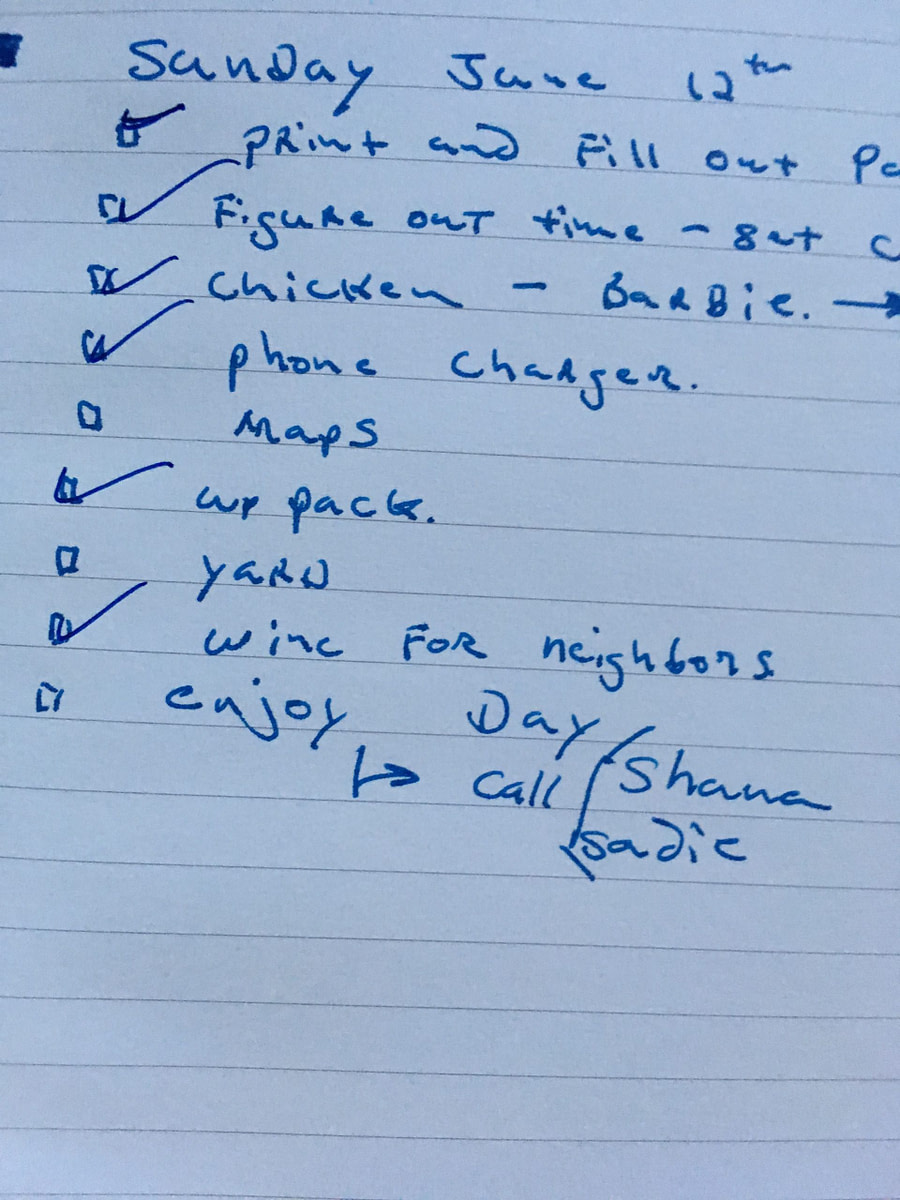 Sunday June 12th
Print and Fill out
Figure out time - get
Chicken - Barbie. →
phone Charger.
Maps
pack.
yard
wine For neighbors
enjoy Day
↳ Call Shana
Sadie